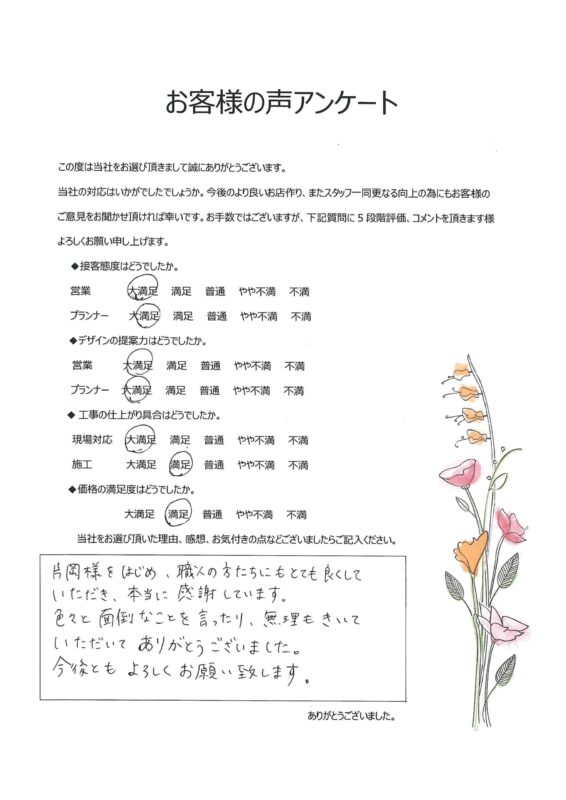 お客様の声アンケート
この度は当社をお選び頂きまして誠にありがとうございます。
当社の対応はいかがでしたでしょうか。今後のより良いお店作り、またスタッフ一同更なる向上の為にもお客様の
ご意見をお聞かせ頂ければ幸いです。お手数ではございますが、下記質問に5段階評価、コメントを頂きます様
よろしくお願い申し上げます。
◆接客態度はどうでしたか。
営業 大満足 満足 普通 やや不満 不満
プランナー 大満足 満足 普通 やや不満 不満
◆デザインの提案力はどうでしたか。
営業 大満足 満足 普通 やや不満 不満
プランナー 大満足 満足 普通 やや不満 不満
◆工事の仕上がり具合はどうでしたか。
現場対応 大満足 満足 普通 やや不満 不満
施工 大満足 満足 普通 やや不満 不満
◆価格の満足度はどうでしたか。
大満足 満足 普通 やや不満 不満
当社をお選び頂いた理由、感想、お気付きの点などございましたらご記入ください。
片岡様をはじめ、職人の方たちにもとても良くして
いただき、本当に感謝しています。
色々と面倒なことを言ったり、無理もきいて
いただいてありがとうございました。
今後ともよろしくお願い致します。
ありがとうございました。